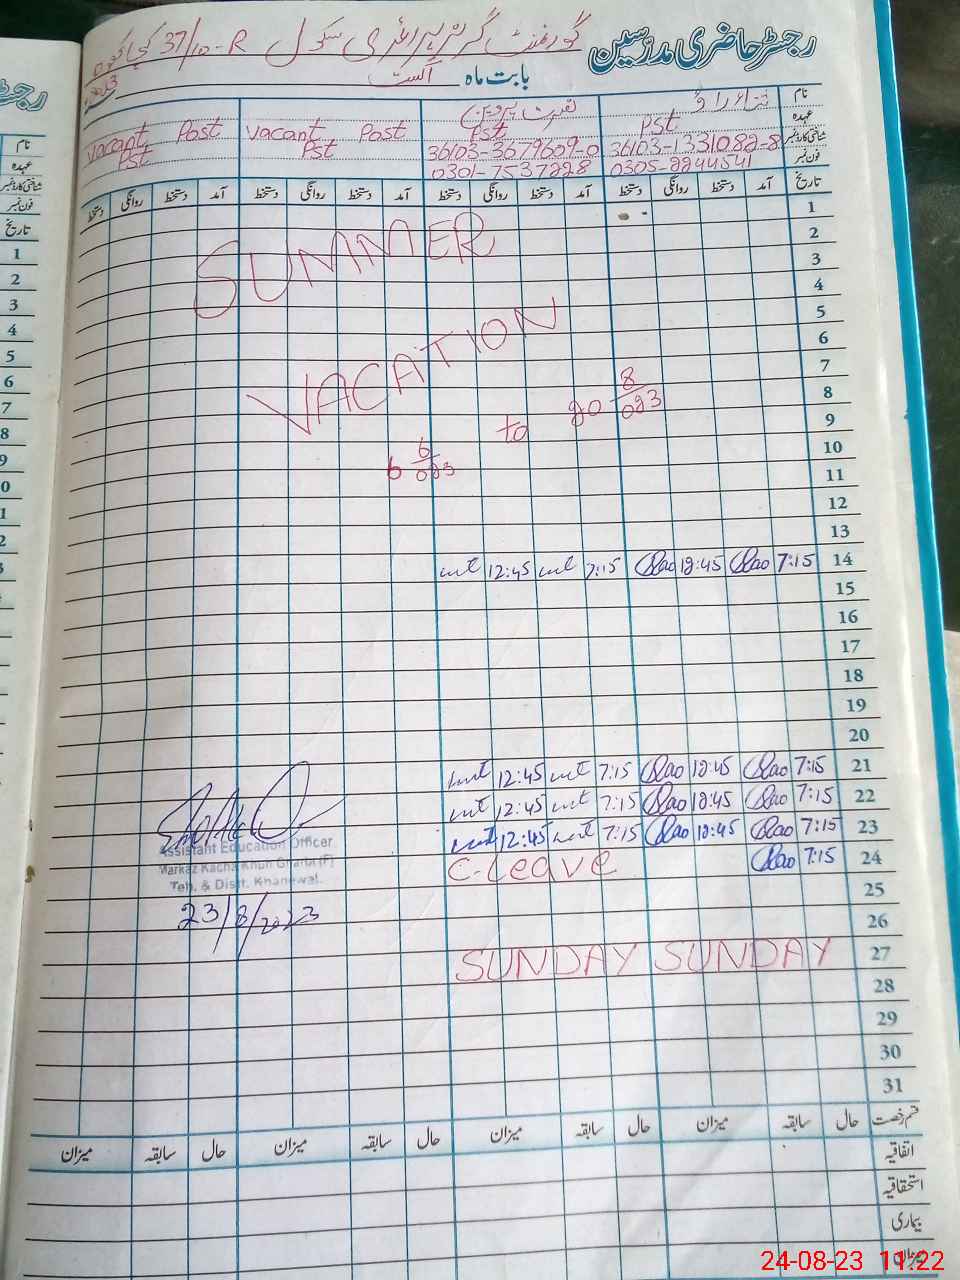 رجسٹر حاضری مدرسین
گورنمنٹ گرلز پرائمری سکول 37/10-R کچا کھوہ
بابت ماہ اگست 2023
نام ثناء راؤ
عہدہ Pst Pst Vacant Post Vacant Post
Pst Pst
شناختی کارڈ نمبر 36103-1331082-8 36103-3679609-0
فون نمبر 0305-2244541 0301-7537228
تاریخ آمد دستخط روانگی دستخط آمد دستخط روانگی دستخط آمد دستخط روانگی دستخط آمد دستخط روانگی دستخط
1
2
SUMMER
3
4
5
6
VACATION
7
8
9
6 6/023 to 20 8/023
10
11
12
13
14 7:15 Rao 12:45 Rao 7:15 12:45
15
16
17
18
19
20
21 7:15 Rao 12:45 Rao 7:15 12:45
22 7:15 Rao 12:45 Rao 7:15 12:45
23 7:15 Rao 12:45 Rao 7:15 12:45
24 7:15 Rao C-Leave
Assistant Education Officer
Markaz Kacha Khuh Gharbi (F)
Teh. & Distt. Khanewal.
23/8/2023
25
26
27 SUNDAY SUNDAY
28
29
30
31
قسم رخصت حال سابقہ میزان حال سابقہ میزان حال سابقہ میزان حال سابقہ میزان
اتفاقیہ
استحقاقیہ
بیماری
میزان
رجسٹر
نام
عہدہ
شناختی کارڈ نمبر
فون نمبر
تاریخ
1
2
3
4
5
6
7
8
9
24-08-23 11:22